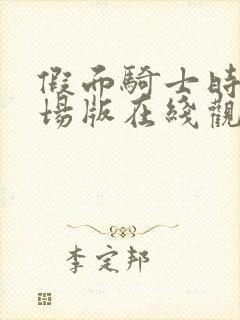 假而騎士時
場版在綫觀
李定邦